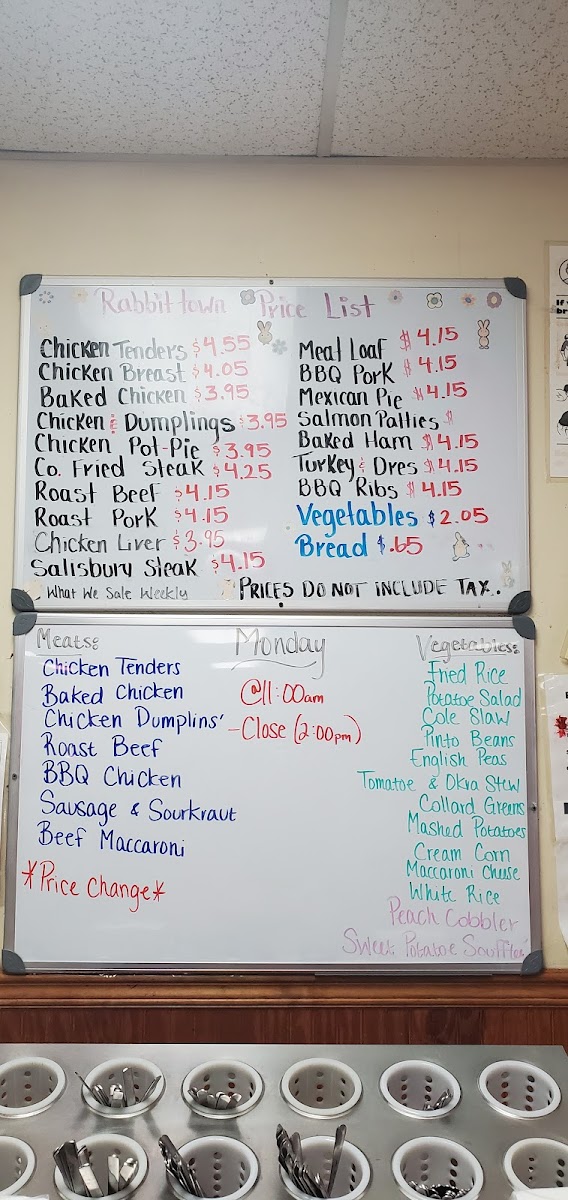 Rabbittown Price List
Chicken Tenders $4.55
Chicken Breast $4.05
Baked Chicken $3.95
Chicken & Dumplings $3.95
Chicken Pot-Pie $3.95
Co. Fried Steak $4.25
Roast Beef $4.15
Roast Pork $4.15
Chicken Liver $3.95
Salisbury Steak $4.15
What We Sale Weekly
Meat Loaf $4.15
BBQ Pork $4.15
Mexican Pie $4.15
Salmon Patties $
Baked Ham $4.15
Turkey & Dres $4.15
BBQ Ribs $4.15
Vegetables $2.05
Bread $.65
PRICES DO NOT INCLUDE TAX..
Monday
@11:00am
-Close (2:00pm)
Meats:
Chicken Tenders
Baked Chicken
Chicken Dumplins'
Roast Beef
BBQ Chicken
Sausage & Sourkraut
Beef Maccaroni
*Price Change*
Vegetables:
Fried Rice
Potatoe Salad
Cole Slaw
Pinto Beans
English Peas
Tomatoe & Okra Stew
Collard Greens
Mashed Potatoes
Cream Corn
Maccaroni Cheese
White Rice
Peach Cobbler
Sweet Potatoe